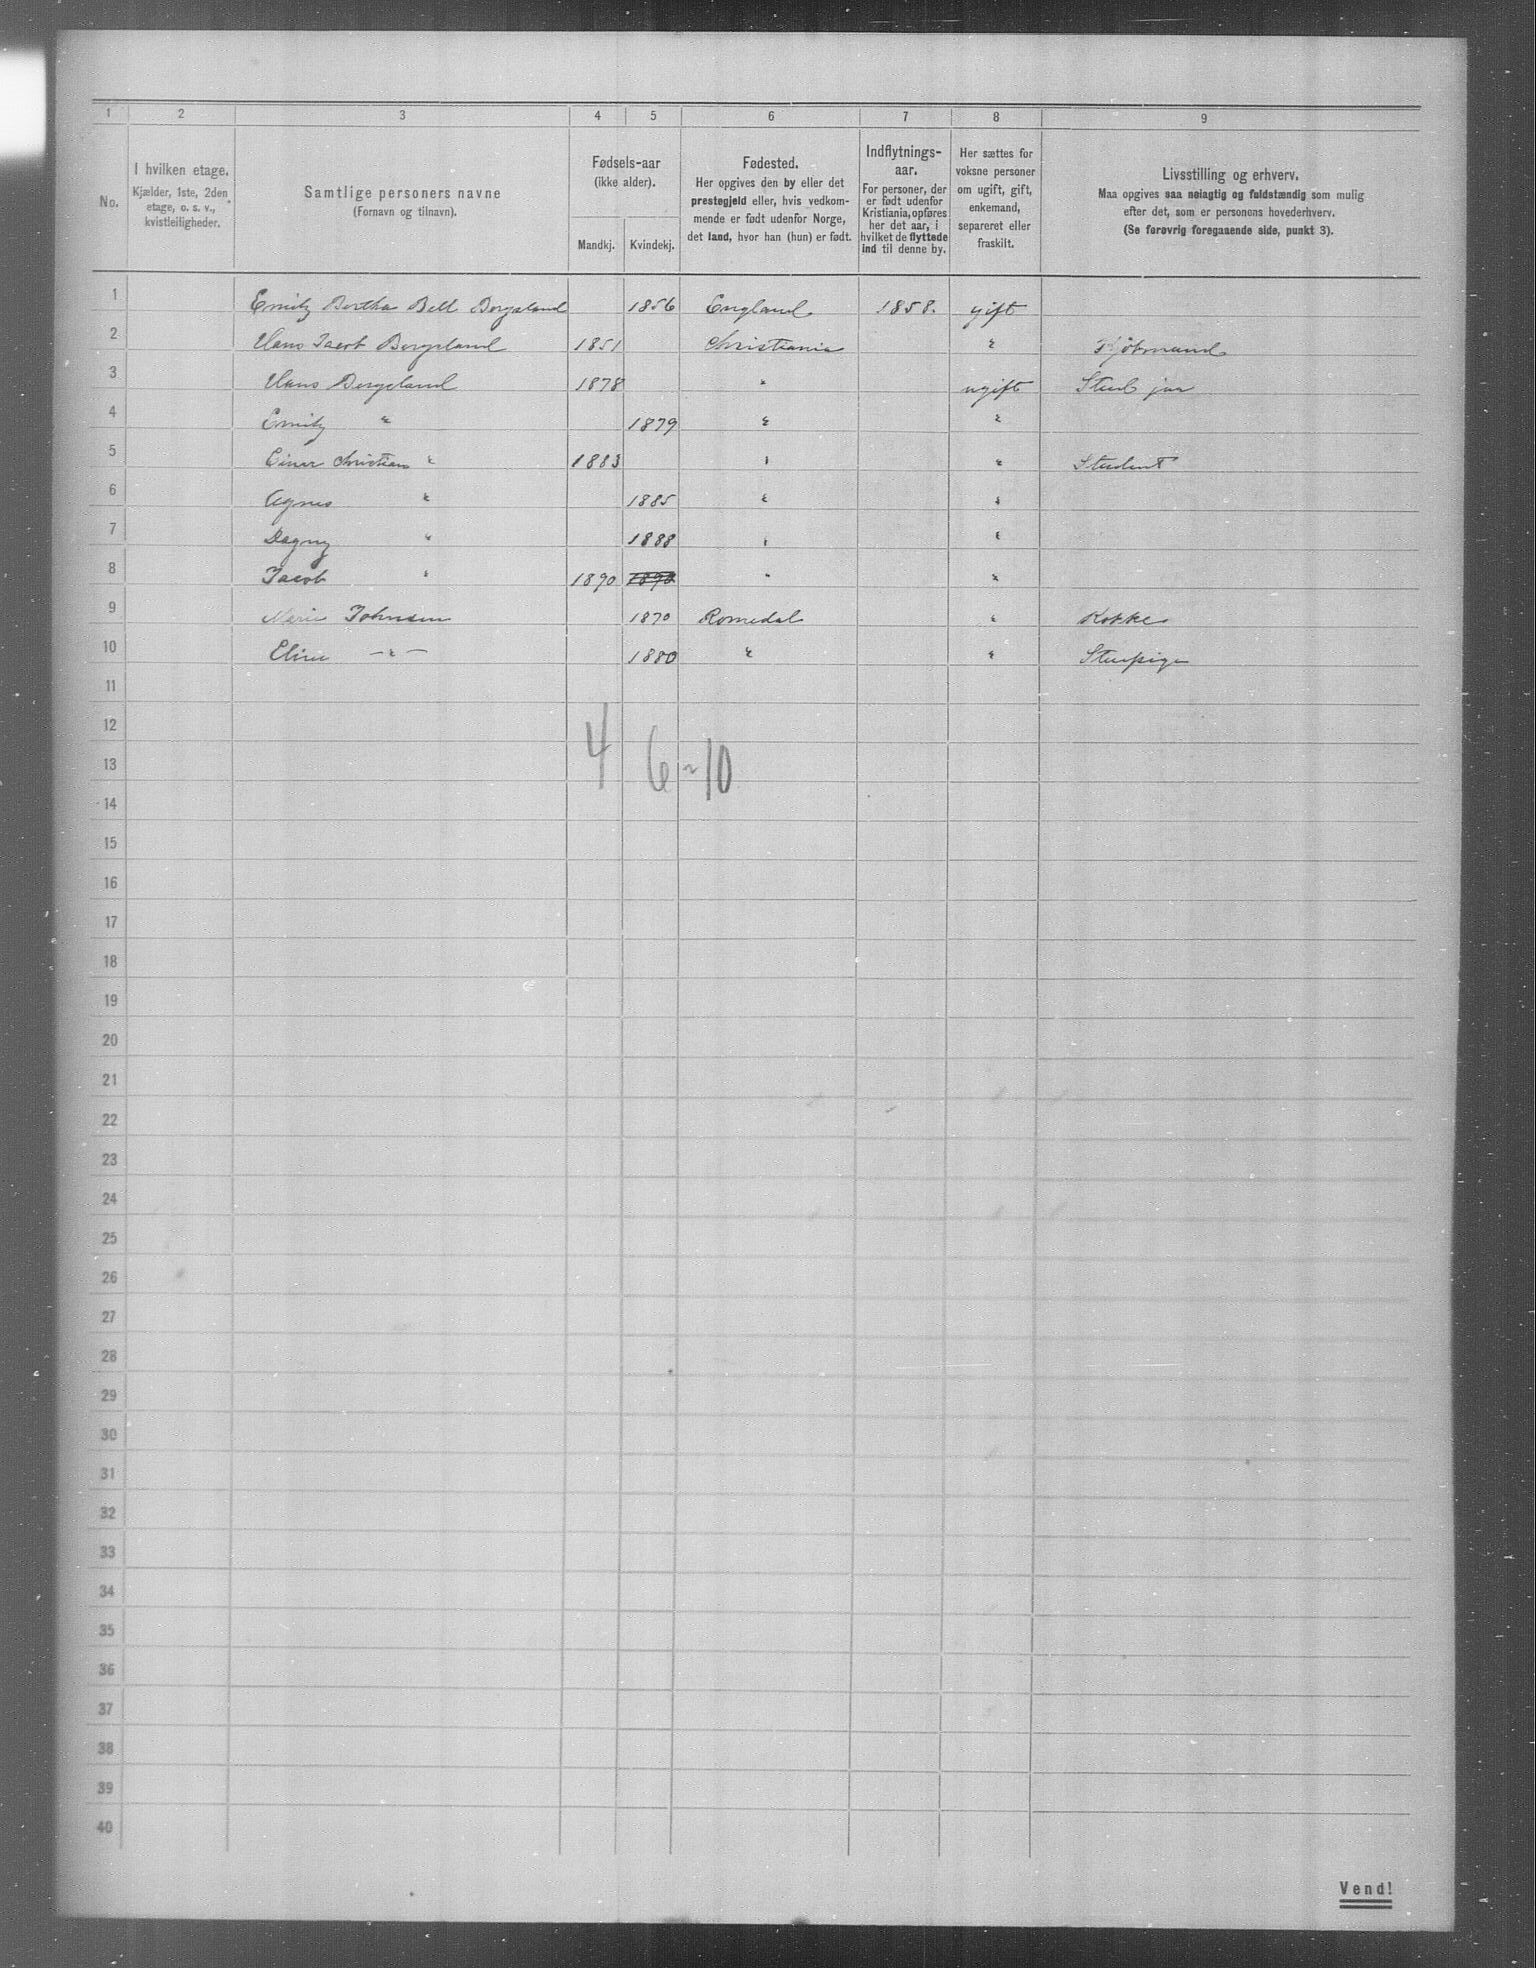 1 2 3 4 5 6 7 8 9
No.
I hvilken etage.
Kjælder, 1ste, 2den
etage, o. s. v.,
kvistleiligheder.
Samtlige personers navne
(Fornavn og tilnavn).
Fødsels-aar
(ikke alder).
Mandkj. Kvindekj.
Fødested.
Her opgives den by eller det
prestegjeld eller, hvis vedkom-
mende er født udenfor Norge,
det land, hvor han (hun) er født.
Indflytnings-
aar.
For personer, der
er født udenfor
Kristiania, opføres
her det aar, i
hvilket de flyttede
ind til denne by.
Her sættes for
voksne personer
om ugift, gift,
enkemand,
separeret eller
fraskilt.
Livsstilling og erhverv.
Maa opgives saa nøiagtig og fuldstændig som mulig
efter det, som er personens hovederhverv.
(Se forøvrig foregaaende side, punkt 3).
1 Emily Bertha Bell Bergsland 1856 England 1858. gift
2 Hans Jacob Bergsland 1851 Christiania " Kjöbmand
3 Hans Bergsland 1878 " ugift Stud jur
4 Emily " 1879 " "
5 Einar Christian " 1883 " " Student
6 Agnes " 1885 " "
7 Dagny " 1888 " "
8 Jacob " 1890 1890 " "
9 Marie Johnsen 1870 Romedal " Kokke
10 Eline —"— 1880 " " Stuepige
11
12
4 6 - 10
13
14
15
16
17
18
19
20
21
22
23
24
25
26
27
28
29
30
31
32
33
34
35
36
37
38
39
40
Vend!